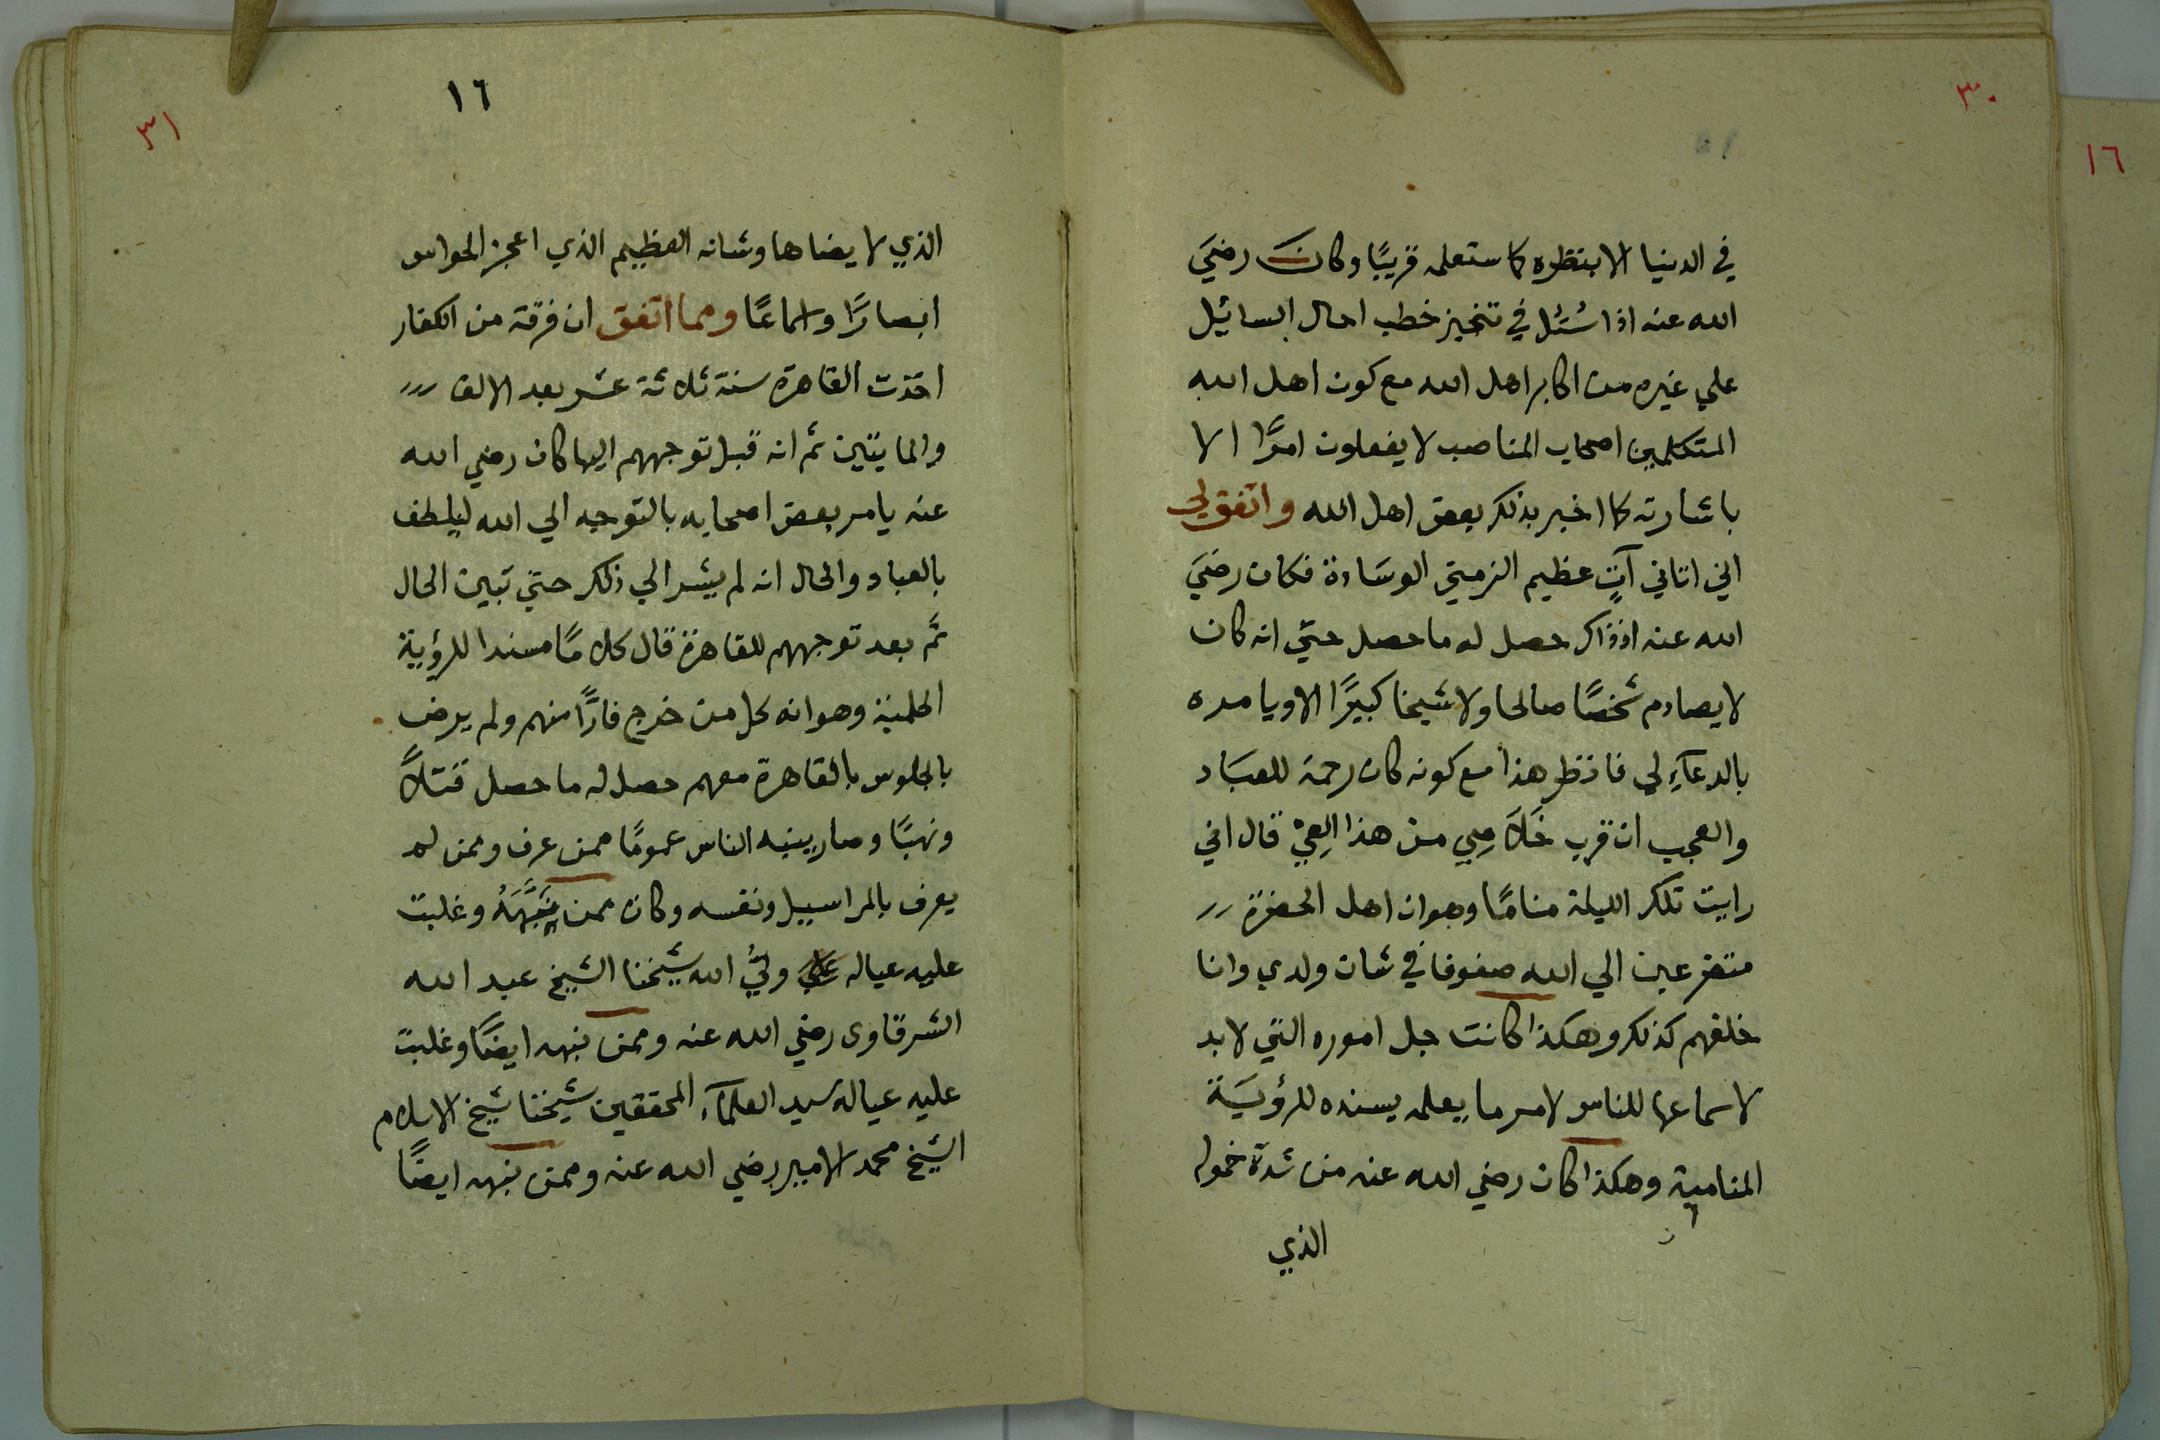 ٣٠
١٦
في الدنيا الا بنظره كما ستعلمه قريبًا وكان رضيَ
الله عنه اذا سُئل في تنجيز خطب احال السائيل
علي غيره من اكابر اهل الله مع كون اهل الله
المتكلمين اصحاب المناصب لا يفعلون امرًا الا
باشارته كما اخبر بذلك بعض اهل الله واتفق لي
اني اتاني آتٍ عظيم الزمني الوسَادة فكان رضيَ
الله عنه اذ ذاك حصل له ما حصل حتي انه كان
لا يصادم شخصًا صالحا ولا شيخا كبيرًا الا ويامره
بالدعآءِ لي فانظر هذا مع كونه كان رحمة للعبَاد
والعجب ان قرب خَلَاصِي من هذا العِيّ قال اني
رايت تلك الليلة منامًا وهو ان اهل الحضرة
متضرعين الي الله صفوفا في شان ولدي وانا
خلفهم كذلك وهكذا كانت جل اموره التي لابد
لاسماعها للناس لامر ما يعلمه يسنده للرؤيَة
المنامية وهكذا كان رضي الله عنه من شدة خموله
الذي
٣١
١٦
الذي لا يضاها وشانه العظيم الذي اعجز الحواس
ابصارًا واسماعًا ومما اتفق ان فرقة من الكفار
اخذت القاهرة سنة ثلاثة عشر بعد الالف
والمايتين ثم انه قبل توجههم اليها كان رضي الله
عنه يامر بعض اصحابه بالتوجه الي الله ليلطف
بالعباد والحال انه لم يشر الي ذلك حتي تبين الحال
ثم بعد توجههم للقاهرة قال كلامًا مسندا للرؤية
الحلمية وهو انه كل من خرج فارًّا منهم ولم يرض
بالجلوس بالقاهرة معهم حصل له ما حصل قتلاً
ونهبًا وصار ينبه الناس عمومًا ممن عرف وممن لم
يعرف بالمراسيل ونفسه وكان ممن نَبَّهَهُ وغلبت
عليه عياله وليُّ الله شيخنا الشيخ عبد الله
الشرقاوى رضي الله عنه وممن نبهه ايضًا وغلبت
عليه عياله سيد العلمآء المحققين شيخنا شيخ الاسلام
الشيخ محمد الامير رضي الله عنه وممن نبهه ايضًا